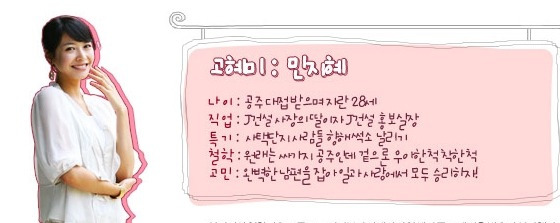 고혜미 : 민지혜
나 이 : 공주 대접 받으며 자란 28세
직 업 : J건설 사장의 딸이자 J건설 홍보실장
특 기 : 사택단지 사람들 향해 썩소 날리기
철 학 : 원래는 싸가지 공주인데 겉으론 우아한 척 착한 척
고 민 : 완벽한 남편을 잡아 일과 사랑에서 모두 승리하자!